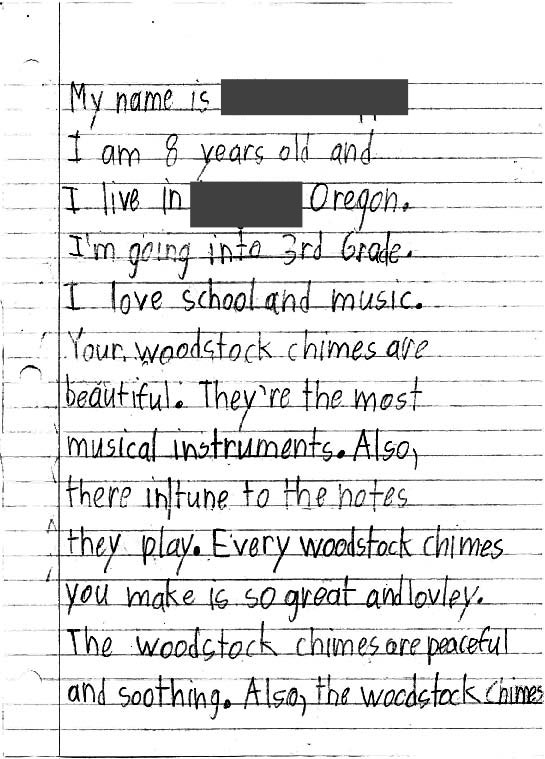 My name is
I am 8 years old and
I live in Oregon.
I'm going into 3rd Grade.
I love school and music.
Your woodstock chimes are
beautiful. They're the most
musical instruments. Also,
there in tune to the notes
they play. Every woodstock chimes
you make is so great and lovley.
The woodstock chimes are peaceful
and soothing. Also, the woodstock chimes